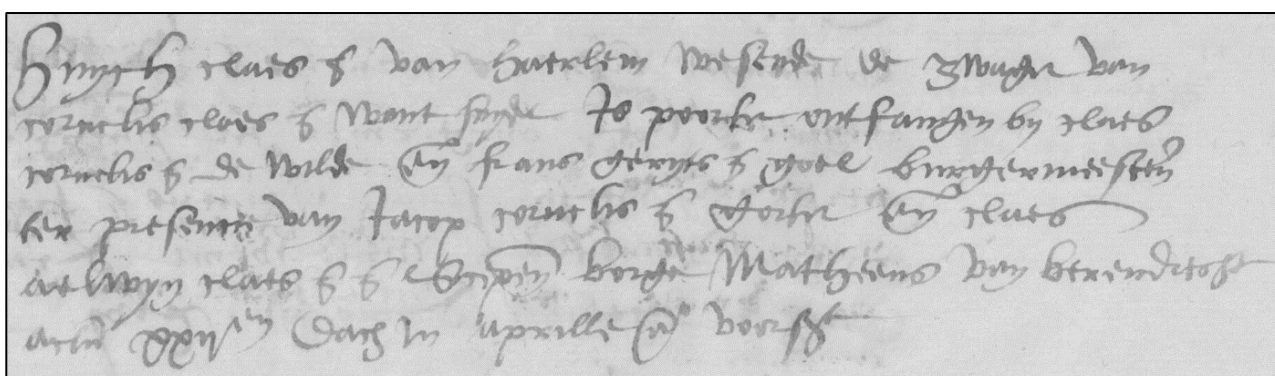 Huych claes ß van haerlem wesende de zwager van
cornelis claes ß want snyder Is poorter ontfangen by claes
cornelis ß de wilde en frans geryts ß goel burgermeesteren
ter presencie van Jacop cornelis ß gorter en claes
aelwyn claes ß ß Scepen borge Matheeus van berendrecht
actum xxijen dach in aprille ao voorscr